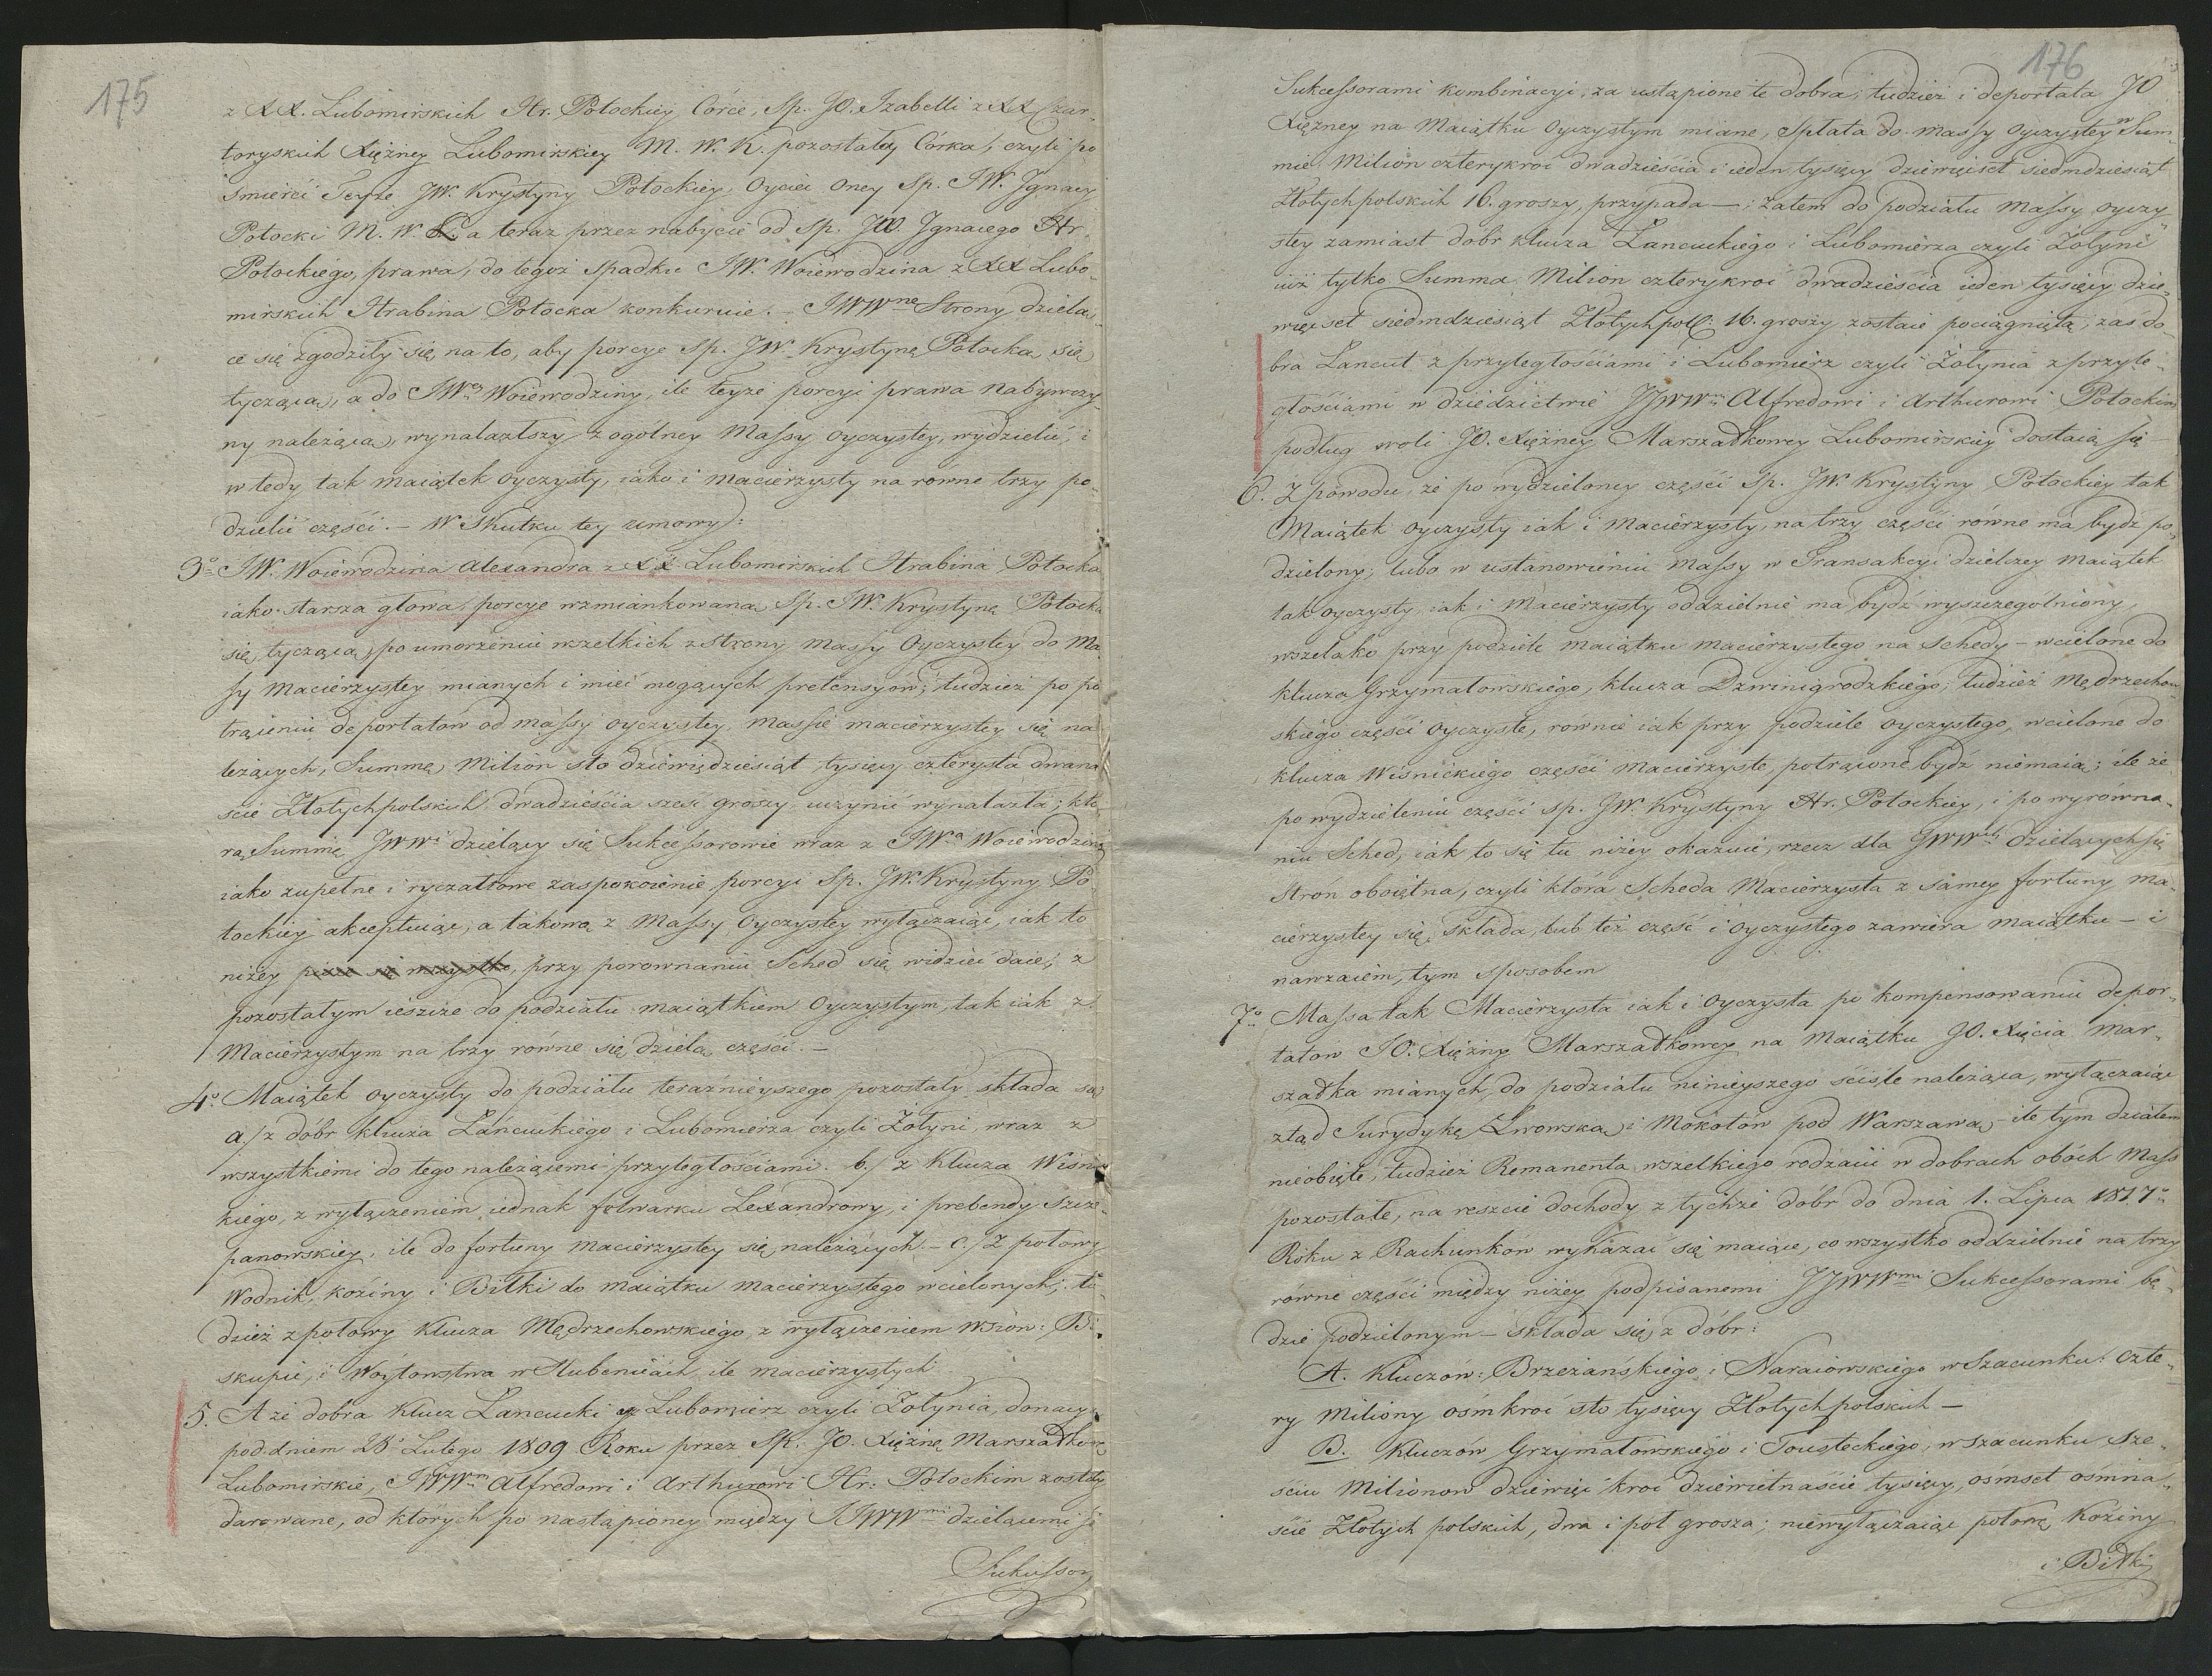 175
z XX. Lubomirskich Hr. Potockiey Córce, Sp. JO. Izabelli z XX Czar„
toryskich Xiężney Lubomirskiey M. W. K. pozostałey Córka, czyli po
śmierći Teyże JW. Krystyny Potockiey, Oyciec oney Sp. JW. Ignacy
Potocki M. W. L. a teraz przez nabycie od Sp. JW. Ignacego Hr.
Potockiego, prawa, do tegoż Spadku JW. Woiewodzina z XX Lubo„
mirskich Hrabina Potocka konkuruie. – JWWne Strony dzielą„
ce się zgodziły się na to, aby porcye Sp. JW. Krystynę Potocką się
tyczącą, a do JWey Woiewodziny, ile teyże porcyi prawa Nabywczy„
ny należącą, wynalazłszy z ogolney Massy Oyczystey, wydzielić, i
w tedy tak maiątek oyczysty, iako i macierzysty na równe trzy po„
dzielić części. – W Skutku tey umowy:
3o JW. Woiewodzina Alexandra z XX Lubomirskich Hrabina Potocka
iako starsza głowa, porcye wzmiankowaną Sp. JW. Krystynę Potocką
się tyczącą, po umorzeniu wszelkich z strony Massy Oyczystey do Ma„
ssy Macierzystey mianych i mieć mogących pretensyów; tudzież po po
trąceniu deportatów od massy oyczystey massie macierzystey się na
leżących, Summę Milion sto dziewięćdziesiąt tysięcy czterysta dwana
ście Złotychpolskich dwadzieścia sześć groszy uczynić wynalazła; któ
rą Summę JWWi dzielący się Sukcessorowie wraz z JWa Woiewodziną
iako zupełne i ryczałtowe zaspokoienie porcyi Sp. JW. Krystyny Po„
tockiey akceptuiąc, a takową z Massy Oyczystey wyłączaiąc, iak to
niżey pisze się wszystko, przy porownaniu Sched się widzieć daie, z
pozostałym ieszcze do podziału maiątkiem Oyczystym, tak iak z
Macierzystym na trzy równe się dzielą części. –
4o Maiątek oyczysty do podziału teraźnieyszego pozostały składa się
a./ z dóbr klucza Łańcuckiego i Lubomierza czyli Żołyni, wraz z
wszystkiemi do tego należącemi przyległościami. b./ z Klucza Wiśnic
kiego, z wyłączeniem iednak folwarku Lexandrowy, i prebendy Szcze„
panowskiey, ile do fortuny macierzystey się należących. – c./ Z połowy
Wodnik, Koźiny i Biłki do maiątku macierzystego wcielonych; tu„
dzież z połowy Klucza Mędrzechowskiego, z wyłączeniem Wsiów: Bi
skupie, i Woytowstwa w Słubenicach, ile macierzystych
5. A że dobra Klucz Lancucki y Lubomierz czyli Żołynia, donacyą
pod dniem 28o Lutego 1809 Roku przez Sp. JO. Xiężnę Marszałkową
Lubomirskię, JWWm Alfredowi i Arthurowi Hr: Potockim zostały
darowane, od których po nastąpioney między JJWWmi dzielącemi się
Sukcessor„
176
Sukcessorami kombinacyi, za ustąpione te dobra, tudzież i deportata JO
Xiężney na Maiątku Oyczystym miane, Spłata do massy Oyczystey w Sum„
mie Milion czterykroć dwadzieścia i ieden tysięcy dziewięćset siedmdziesiąt
Złotychpolskich 16. groszy, przypada –; Zatem do podziału Massy Oyczy„
stey zamiast dóbr klucza Lancuckiego i Lubomierza czyli Żołyni
iuż tylko Summa Milion czterykroć dwadzieścia ieden tysięcy dzie„
więćset siedmdziesiąt Złotychpols: 16. groszy zostaie pociągnięta, zaś do„
bra Lancut z przyległościami i Lubomierz czyli Żołynia z przyle„
głościami w dziedzictwie JJWWm Alfredowi i Arthurowi Potockim
podług woli JO. Xiężney Marszałkowey Lubomirskiey dostaią się –
6. Z powodu, że po wydzieloney części Sp. JW. Krystyny Potockiey tak
Maiątek oyczysty iak i macierzysty, na trzy części równe ma bydź po„
dzielony; lubo w ustanowieniu Massy w Transakcyi dzielczey maiątek
tak oyczysty, iak i macierzysty oddzielnie ma bydź wyszczegolniony,
wszelako przy podziele maiątku macierzystego na Schedy – wcielone do
klucza Grzymałowskiego, klucza Dzwinigrodzkiego, tudzież Mędrzechow
skiego części oyczyste, rownie iak przy podziele oyczystego, wcielone do
klucza Wisnickiego części macierzyste, potrącone bydź niemaią; ile że
po wydzieleniu części sp. JW. Krystyny Hr. Potockiey, i po wyrówna„
niu Sched, iak to się tu niżey okazuie, rzecz dla JWWch dzielących się
Stron obojętna, czyli która Scheda Macierzysta z samey fortuny ma„
cierzystey się składa, lub też część i oyczystego zawiera maiątku – i
nawzaiem, tym sposobem
7o Massa tak Macierzysta iak i oyczysta po kompensowaniu depor„
tatow JO. Xiężny Marszałkowey na Maiątku JO. Xięcia Mar„
szałka mianych, do podziału ninieyszego ściśle należąca, wyłączaiąc
ztąd Jurydykę Lwowską i Mokotow pod Warszawą – ile tym działem
nieobięte, tudzież Remanenta wszelkiego rodzaiu w dobrach obóch Mass
pozostałe, na reszcie dochody z tychże dóbr do dnia 1. Lipca 1817o
Roku z Rachunków wykazać się maiące, co wszystko oddzielnie na trzy
równe części między niżey podpisanemi JJWWmi Sukcessorami bę„
dzie podzielonym – składa się z dóbr:
A. Kluczów: Brzeżańskiego i Naraiowskiego w Szacunku: Czte„
ry Miliony ośmkroć sto tysięcy Złotychpolskich –
B. Kluczów Grzymałowskiego i Tousteckiego, w szacunku Sze„
ściu Milionow dziewięć kroć dziewietnaście tysięcy, ośmset ośmna„
ście Złotych polskich, dwa i pół grosza; niewyłączaiąc połowę Koźiny
i Biłki